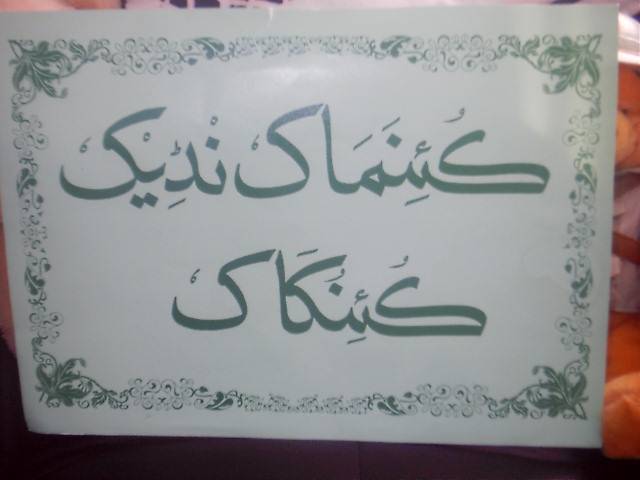 کُئِنَمَاک نْڈِیْک
کُئِنُکَاک